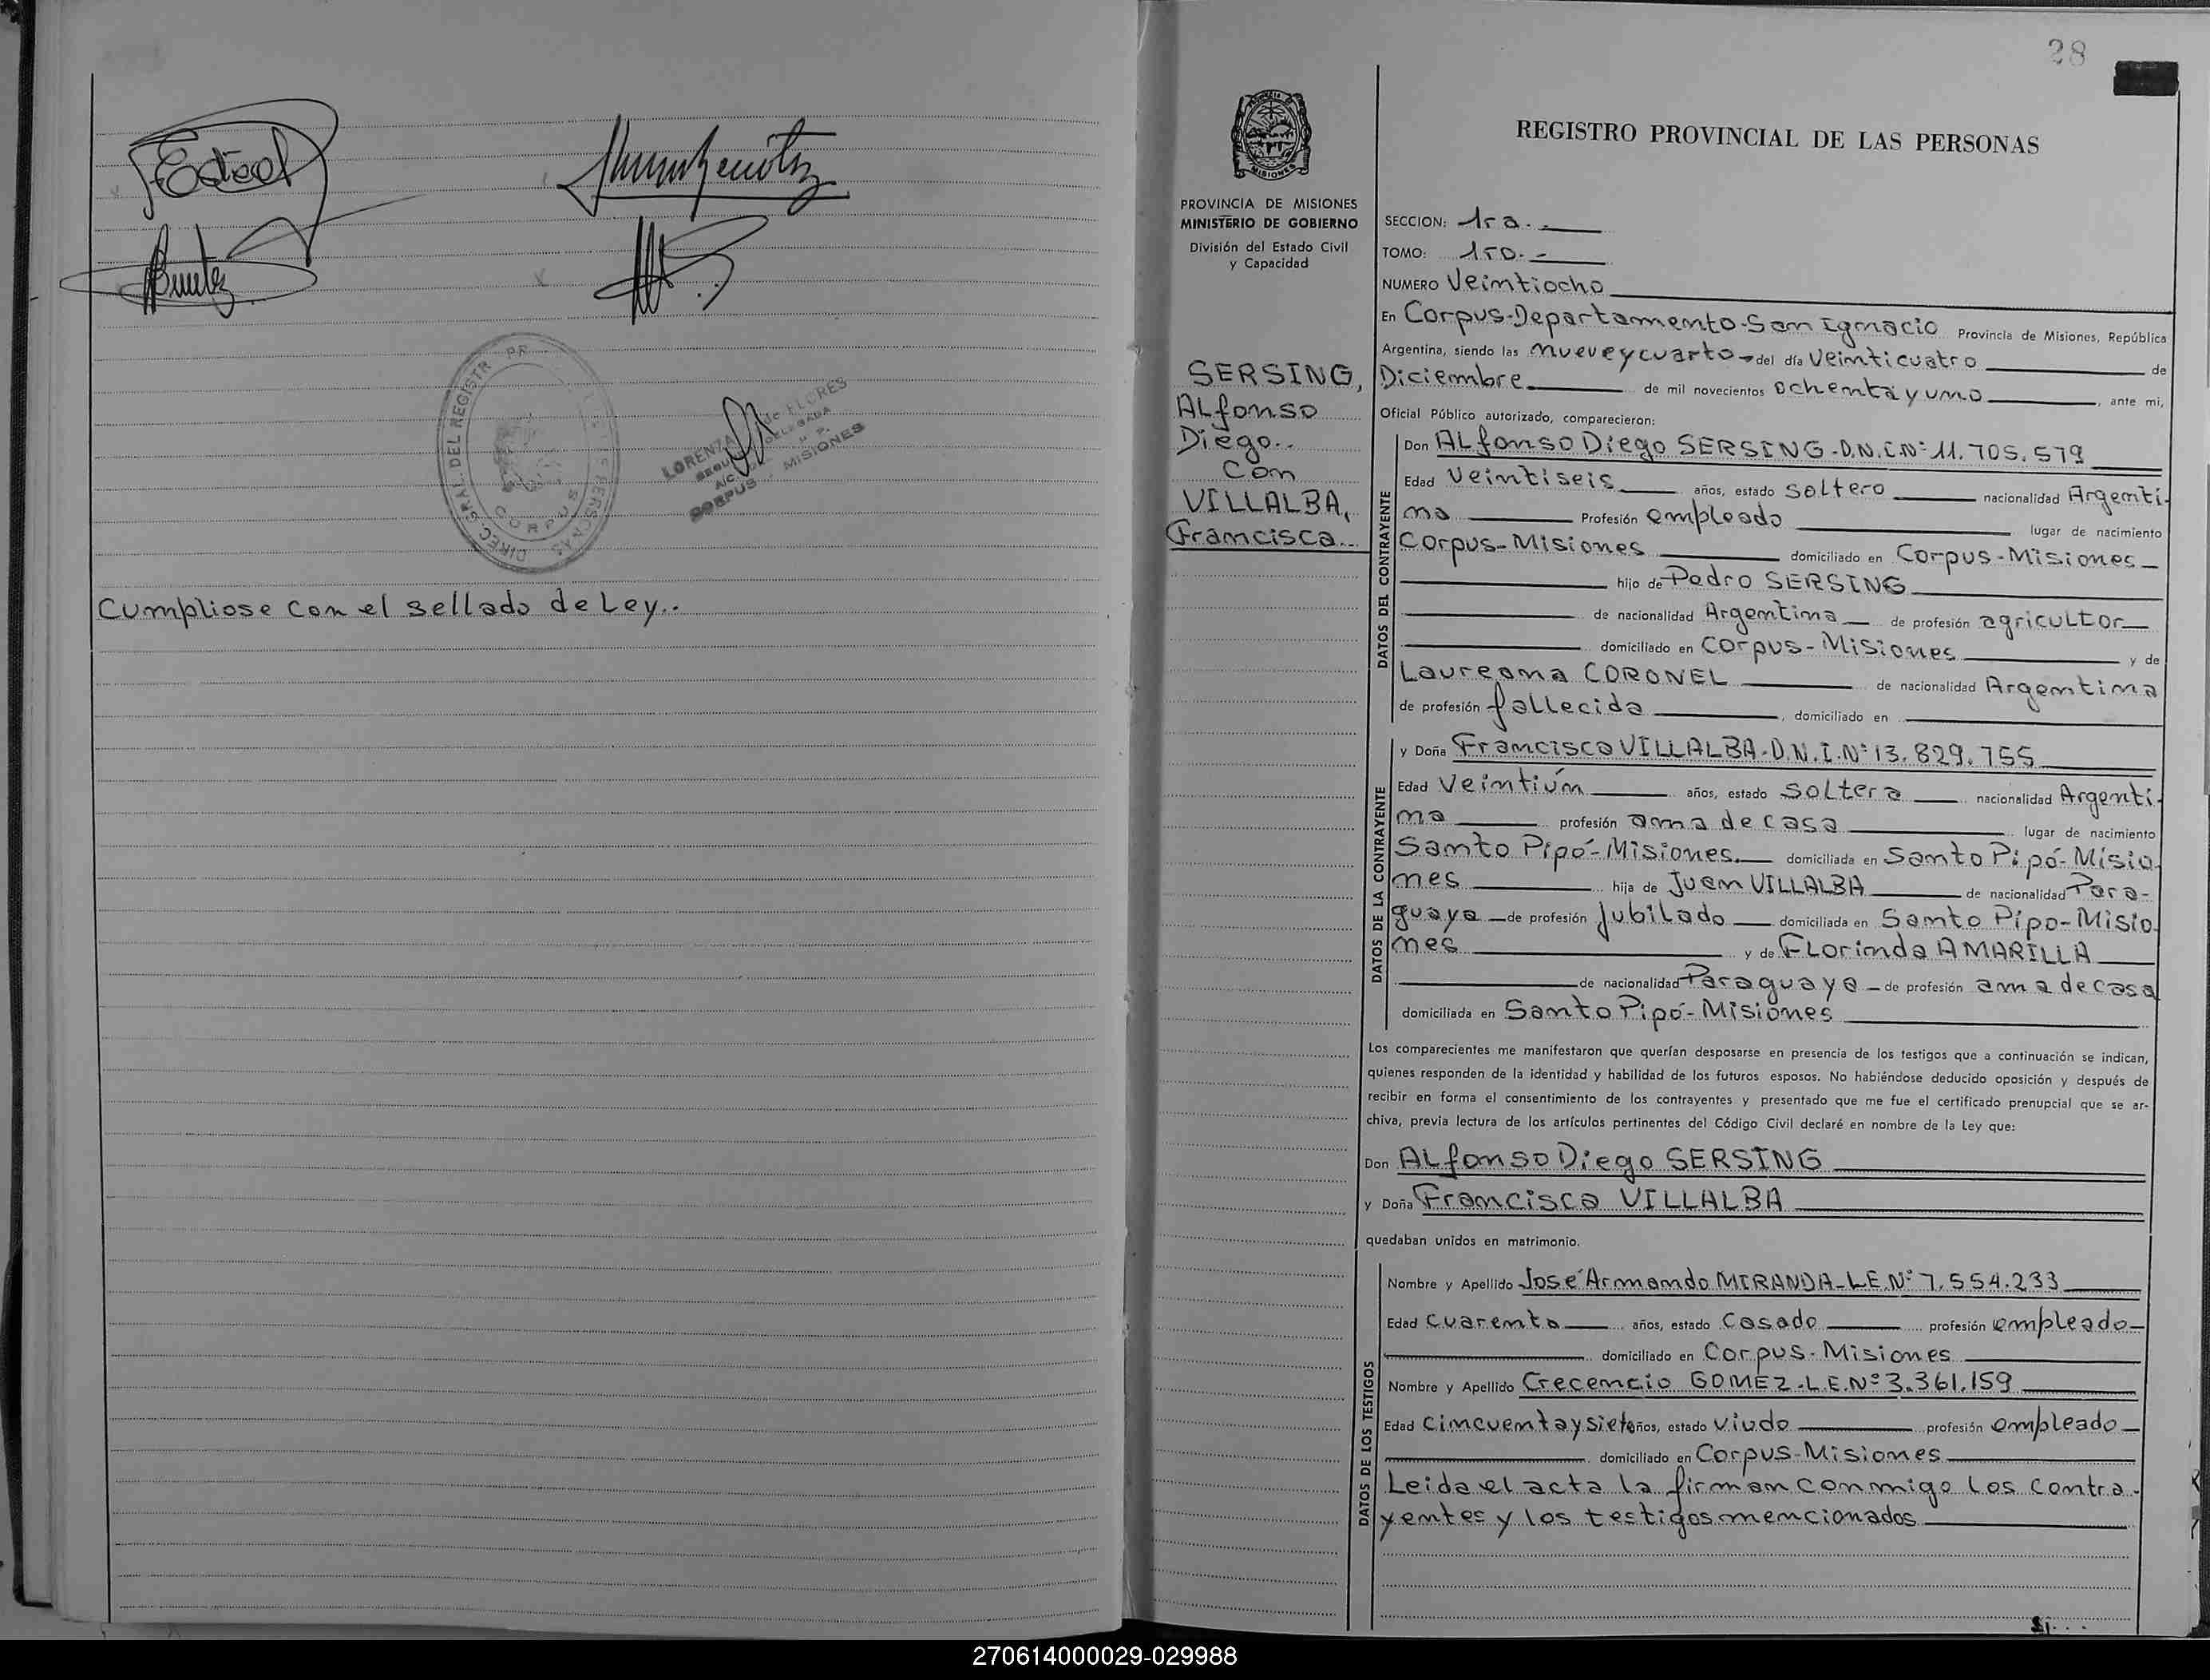 DIREC. GRAL. DEL REGISTR
PERSONAS
CORPUS
LORENZA de FLORES
DELEGADA
CORPUS MISIONES
Cumpliose con el sellado de Ley..
28
PROVINCIA DE MISIONES
MINISTERIO DE GOBIERNO
División del Estado Civil
y Capacidad
SERSING,
ALfonso
Diego..
Con
VILLALBA,
Francisca..
REGISTRO PROVINCIAL DE LAS PERSONAS
SECCION: 1ra.-
TOMO: 1ro.-
NUMERO Veintiocho
En Corpus-Departamento-San Ignacio Provincia de Misiones, República
Argentina, siendo las nueve y cuarto del día Veinticuatro de
Diciembre de mil novecientos ochenta y uno, ante mi,
Oficial Público autorizado, comparecieron:
DATOS DEL CONTRAYENTE
Don ALfonso Diego SERSING-D.N.I.Nº 11.705.579
Edad Veintiseis años, estado soltero nacionalidad Argenti-
na Profesión empleado lugar de nacimiento
Corpus-Misiones domiciliado en Corpus-Misiones
hijo de Pedro SERSING
de nacionalidad Argentina de profesión agricultor
domiciliado en Corpus-Misiones y de
Laureana CORONEL de nacionalidad Argentina
de profesión fallecida, domiciliado en
DATOS DE LA CONTRAYENTE
y Doña Francisca VILLALBA-D.N.I.Nº 13.829.755
Edad Veintiún años, estado soltera nacionalidad Argenti-
na profesión ama de casa lugar de nacimiento
Santo Pipó-Misiones. domiciliada en Santo Pipó-Misio-
nes hija de Juan VILLALBA de nacionalidad Para-
guaya de profesión jubilado domiciliada en Santo Pipo-Misio-
nes y de Florinda AMARILLA
de nacionalidad Paraguaya de profesión ama de casa
domiciliada en Santo Pipó-Misiones
Los comparecientes me manifestaron que querían desposarse en presencia de los testigos que a continuación se indican,
quienes responden de la identidad y habilidad de los futuros esposos. No habiéndose deducido oposición y después de
recibir en forma el consentimiento de los contrayentes y presentado que me fue el certificado prenupcial que se ar-
chiva, previa lectura de los artículos pertinentes del Código Civil declaré en nombre de la Ley que:
Don ALfonso Diego SERSING
y Doña Francisca VILLALBA
quedaban unidos en matrimonio.
DATOS DE LOS TESTIGOS
Nombre y Apellido José Armando MIRANDA-L.E.Nº 7.554.233
Edad cuarenta años, estado casado profesión empleado
domiciliado en Corpus-Misiones
Nombre y Apellido Crecencio GOMEZ-L.E.Nº 3.361.159
Edad cincuenta y siete años, estado viudo profesión empleado
domiciliado en Corpus-Misiones
Leida el acta la firman conmigo los contra-
yentes y los testigos mencionados
270614000029-029988